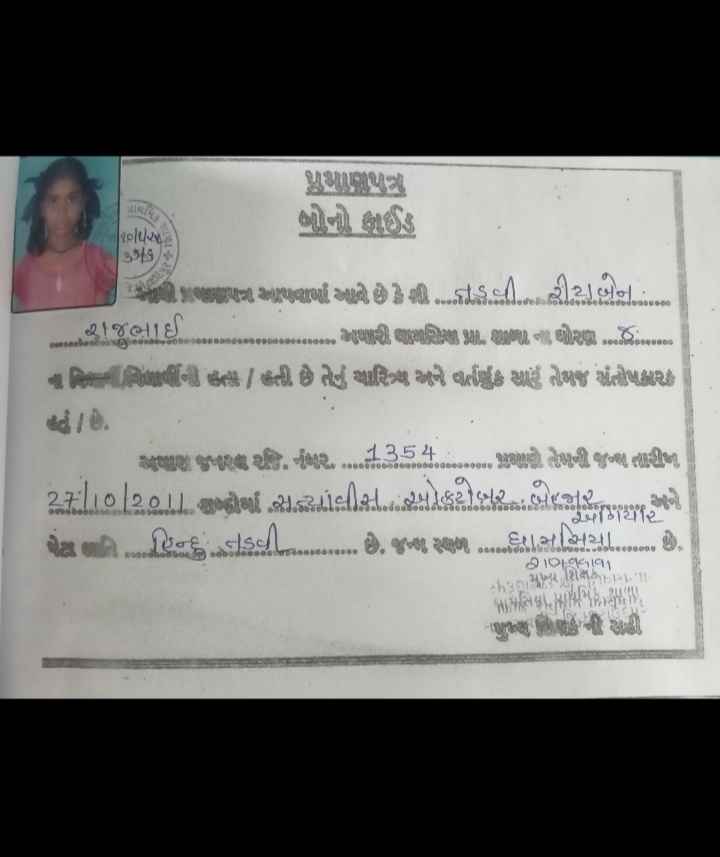 પ્રમાણપત્ર
બોનો ફાઈડ
આથી પ્રમાણપત્ર આપવામાં આવે છે કે શ્રી તડવી રીટાબેન
રાજુભાઈ અમારી ધામસિયા પ્રા. શાળા ના ધોરણ ૪
ના વિદ્યાર્થી/વિદ્યાર્થીની હતા / હતી છે તેનું ચારિત્ર્ય અને વર્તણુંક સારું તેમજ સંતોષકારક
હતું / છે.
અમારા જનરલ રજિ. નંબર. 1354 પ્રમાણે તેમની જન્મ તારીખ
27/10/2011 શબ્દોમાં સત્યાંવીસ ઓક્ટોબર બેહજાર અગિયાર અને
પેટા જાતિ હિન્દુ તડવી છે. જન્મ સ્થળ ધામસિયા છે.
મુખ્ય શિક્ષક
ધામસિયા પ્રાથમિક શાળા
મુખ્ય શિક્ષક ની સહી